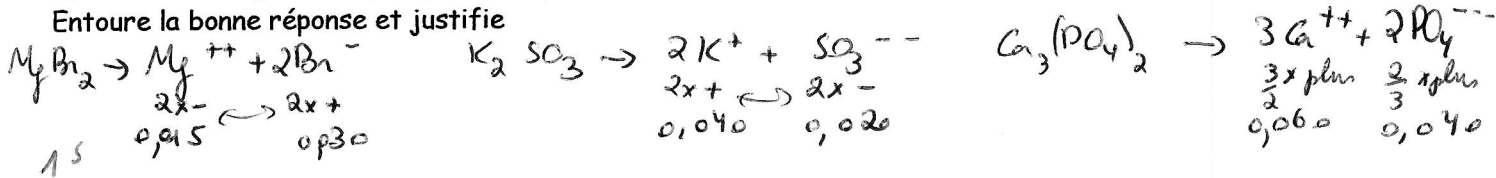 Entoure la bonne réponse et justifie
MgBr₂ → Mg⁺⁺ + 2Br⁻
2x- ↔ 2x+
0,015 0,030
K₂SO₃ → 2K⁺ + SO₃⁻⁻
2x+ ↔ 2x-
0,040 0,020
Ca₃(PO₄)₂ → 3Ca⁺⁺ + 2PO₄⁻⁻⁻
3/2 x plus 2/3 x plus
0,060 0,040